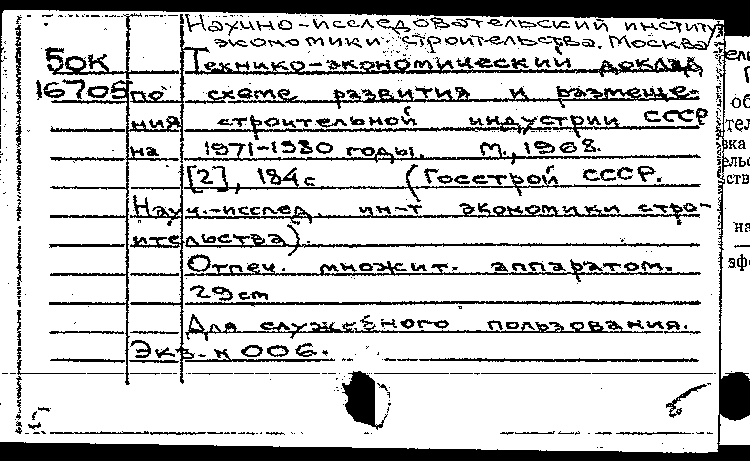 Научно-исследовательский институт
экономики строительства. Москва
Бок Технико-экономический доклад
16706 по схеме развития и размеще-
ния строительной индустрии СССР
на 1971-1980 годы. М., 1968.
[2], 184 с (Госстрой СССР.
Науч.-исслед. ин-т экономики стро-
ительства).
Отпеч. множит. аппаратом.
29 cm
Для служебного пользования.
Экз. н 006.